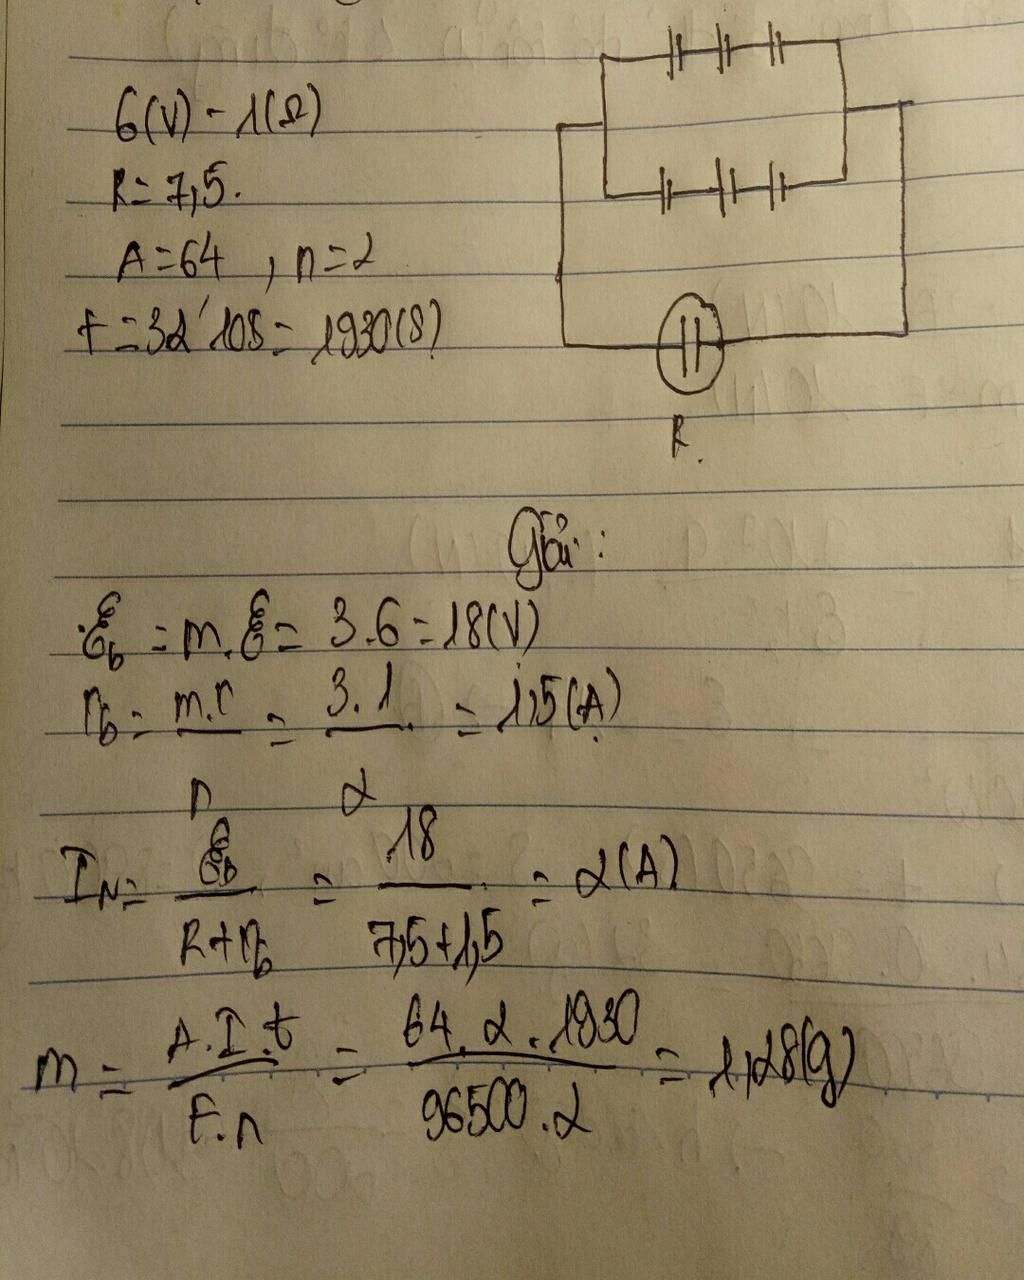 6(V) - 1(Ω)
R = 7,5.
A = 64 , n = 2
t = 32' 10s = 1930(s)
R.
Giải:
ℰb = m.ℰ = 3.6 = 18(V)
rb = m.r / n = 3.1 / 2 = 1,5(A)
IN = ℰb / R+rb = 18 / 7,5+1,5 = 2(A)
m = A.I.t / F.n = 64.2.1930 / 96500.2 = 1,28(g)